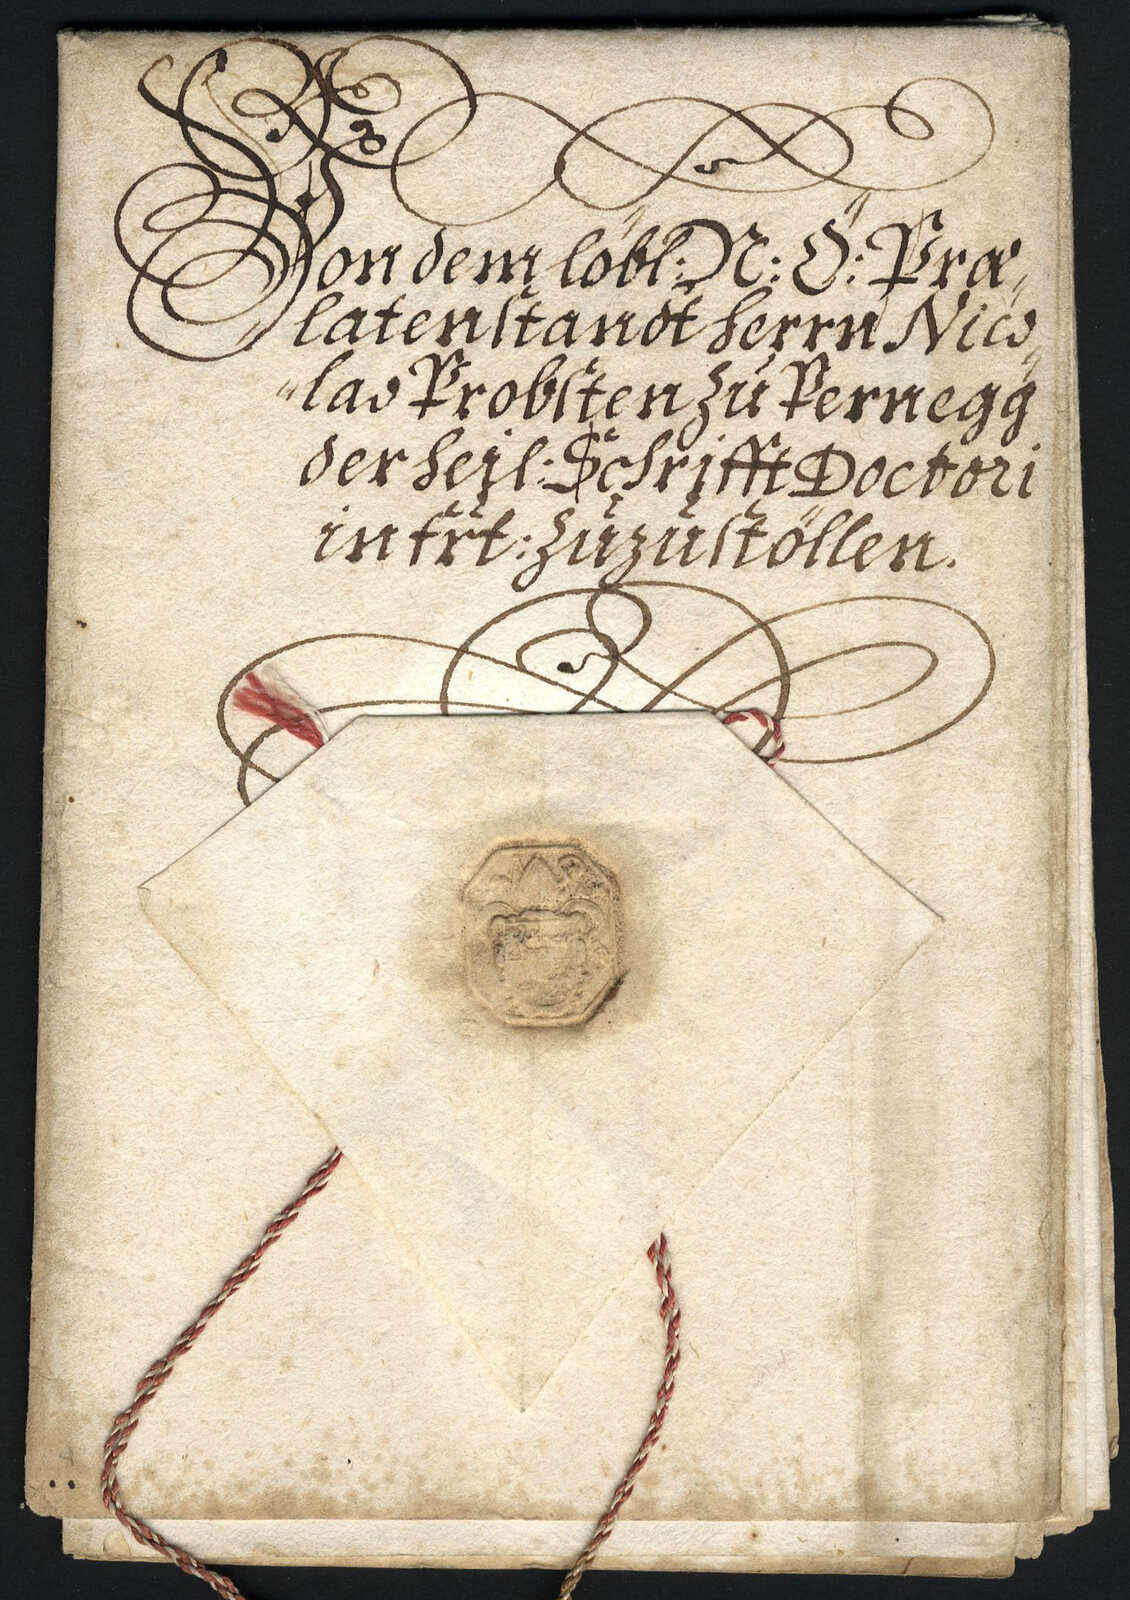 Von dem löbl: N: Ö: Præ„
latenstandt herrn Nico
„las Probsten zu Pernegg
der heil: Schrifft Doctori
in frt: zuzustöllen.